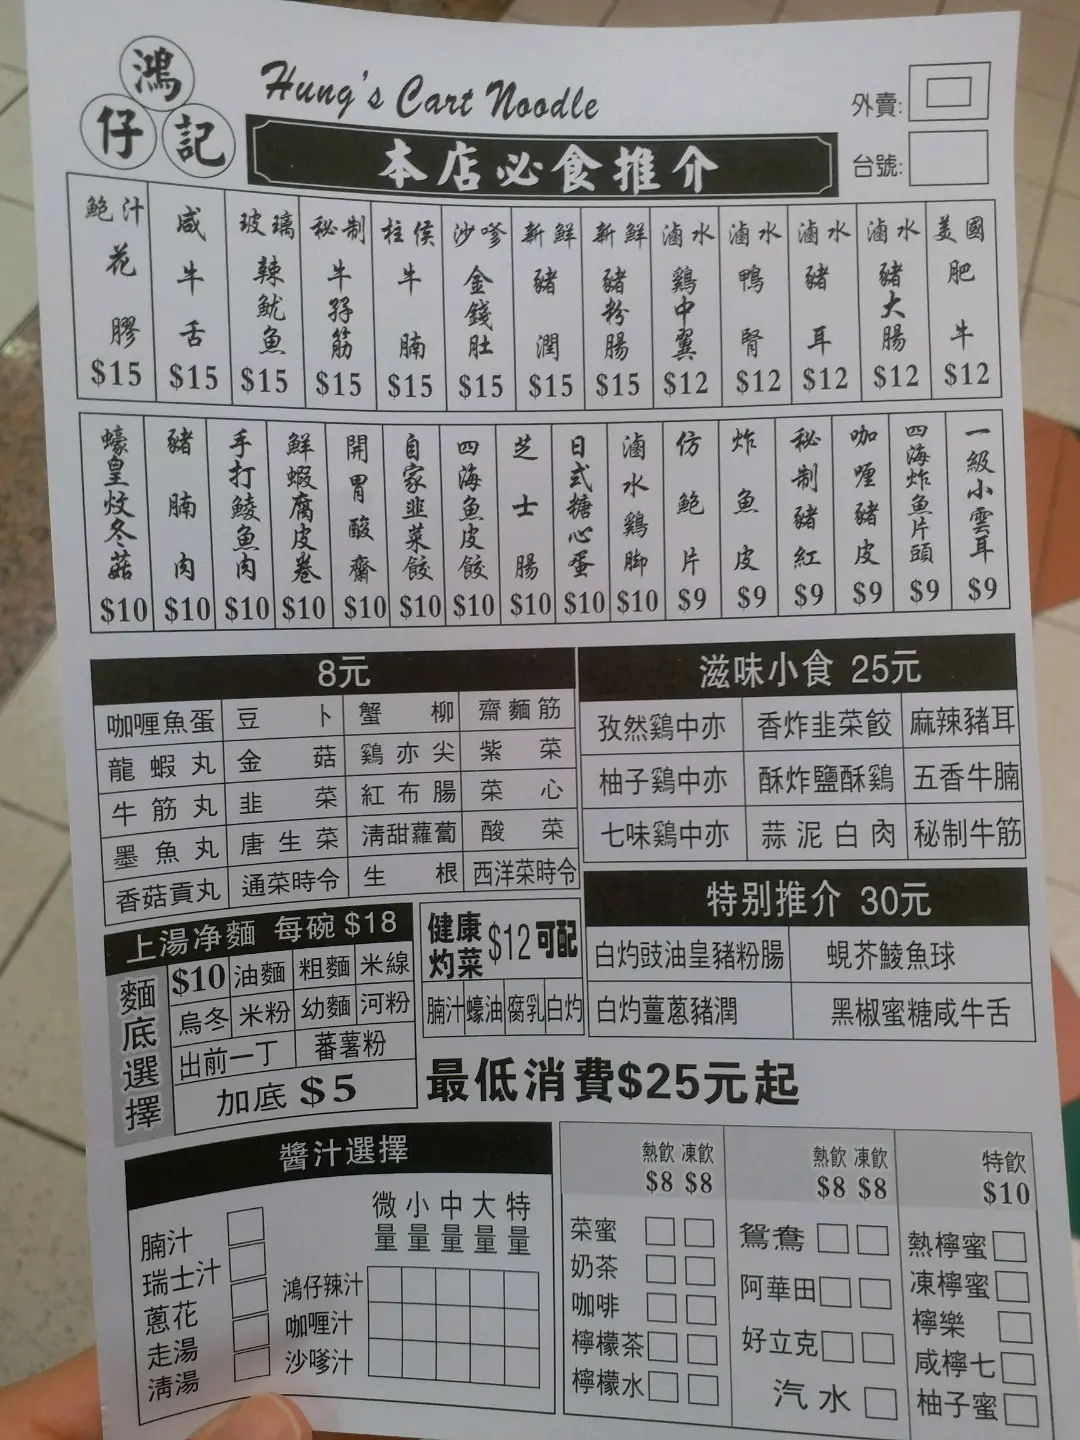 鴻
仔 記
Hung's Cart Noodle
外賣:
本店必食推介
台號:
鮑汁花膠 $15
咸牛舌 $15
玻璃辣魷魚 $15
秘制牛孖筋 $15
柱侯牛腩 $15
沙嗲金錢肚 $15
新鮮豬潤 $15
新鮮豬粉腸 $15
滷水鷄中翼 $12
滷水鴨腎 $12
滷水豬耳 $12
滷水豬大腸 $12
美國肥牛 $12
蠔皇炆冬菇 $10
豬腩肉 $10
手打鯪魚肉 $10
鮮蝦腐皮卷 $10
開胃酸齋 $10
自家韭菜餃 $10
四海魚皮餃 $10
芝士腸 $10
日式糖心蛋 $10
滷水鷄脚 $10
仿鮑片 $9
炸魚皮 $9
秘制豬紅 $9
咖喱豬皮 $9
四海炸魚片頭 $9
一級小雲耳 $9
8元
咖喱魚蛋 豆卜 蟹柳 齋麵筋
龍蝦丸 金菇 鷄亦尖 紫菜
牛筋丸 韭菜 紅布腸 菜心
墨魚丸 唐生菜 清甜蘿蔔 酸菜
香菇貢丸 通菜時令 生根 西洋菜時令
滋味小食 25元
孜然鷄中亦 香炸韭菜餃 麻辣豬耳
柚子鷄中亦 酥炸鹽酥鷄 五香牛腩
七味鷄中亦 蒜泥白肉 秘制牛筋
特别推介 30元
白灼豉油皇豬粉腸 蜆芥鯪魚球
白灼薑蔥豬潤 黑椒蜜糖咸牛舌
上湯净麵 每碗 $18
麵底選擇
$10 油麵 粗麵 米線
烏冬 米粉 幼麵 河粉
出前一丁 蕃薯粉
加底 $5
健康灼菜 $12 可配
腩汁 蠔油 腐乳 白灼
最低消費$25元起
醬汁選擇
微量 小量 中量 大量 特量
腩汁
瑞士汁
蔥花
走湯
清湯
鴻仔辣汁
咖喱汁
沙嗲汁
熱飲 凍飲
$8 $8
菜蜜
奶茶
咖啡
檸檬茶
檸檬水
熱飲 凍飲
$8 $8
鴛鴦
阿華田
好立克
汽水
特飲
$10
熱檸蜜
凍檸蜜
檸樂
咸檸七
柚子蜜